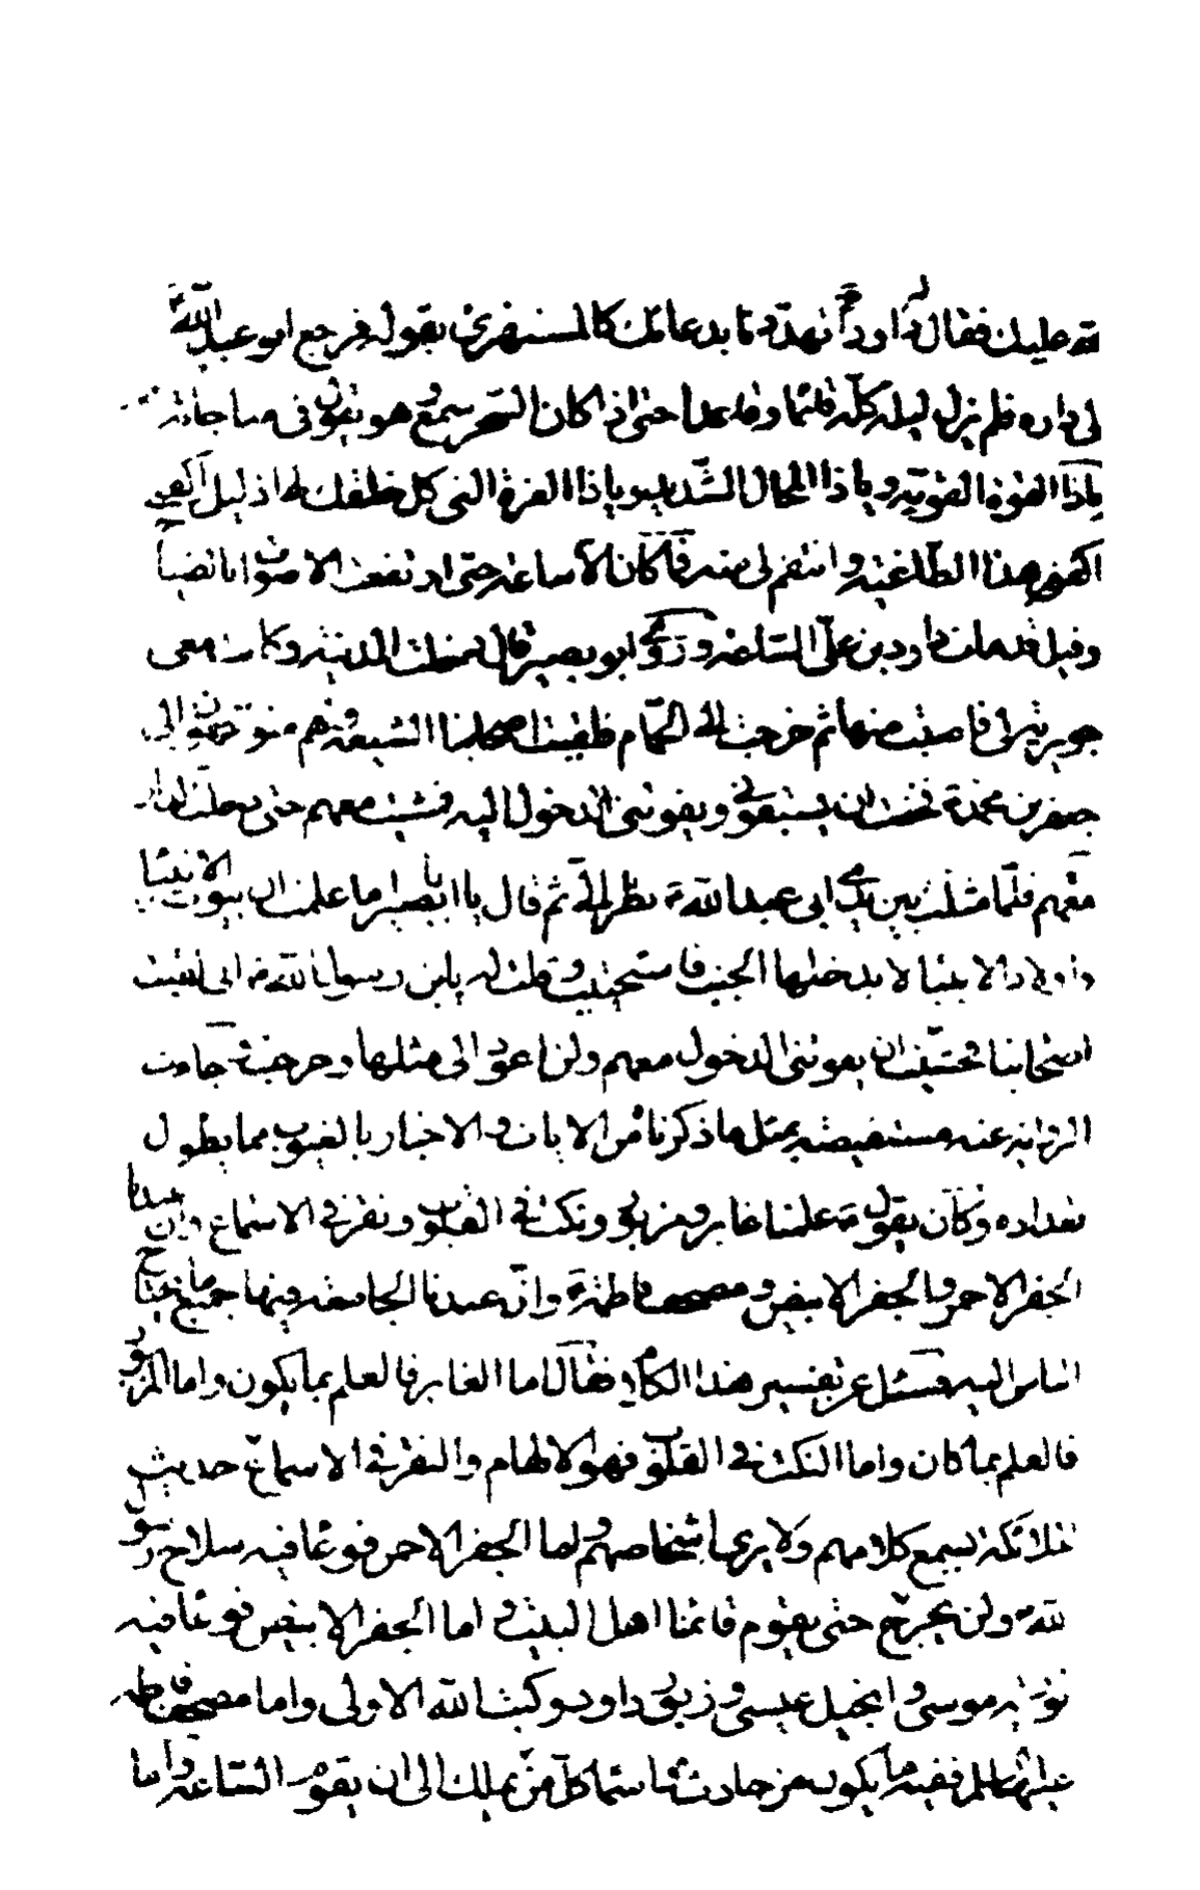 لله عليك فقال له داود بن علي تهددنا بدعائك كالمستهزئ بقوله فرجع ابو عبد الله ع
الى داره فلم يزل ليله كله قائما وقاعدا حتى اذا كان السحر سمع وهو يقول في مناجاته
ياذا القوة القوية وياذا المحال الشديد وياذا العزة التي كل خلقك لها ذليل اكفني
اكفني هذا الطاغية وانتقم لي منه فما كان الا ساعة حتى ارتفعت الاصوات بالصياح
وقيل قد مات داود بن علي الساعة وروى ابو بصير قال دخلت المدينة وكانت معي
جويرية لي فاصبت منها ثم خرجت الى الحمام فلقيت اصحابنا الشيعة وهم متوجهون الى
جعفر بن محمد ع فخفت ان يسبقوني ويفوتني الدخول اليه فمشيت معهم حتى دخلت الدار
معهم فلما مثلت بين يدي ابي عبد الله ع نظر الي ثم قال يا ابا بصير اما علمت ان بيوت الانبيا
واولاد الانبيا لا يدخلها الجنب فاستحييت وقلت له يابن رسول الله ص اني لقيت
اصحابنا فخشيت ان يفوتني الدخول معهم ولن اعود الى مثلها وخرجت وجاءت
الرواية عنه مستفيضة بمثل ما ذكرناه من الايات والاخبار بالغيوب مما يطول
تعداده وكان يقول ع علمنا غابر ومزبور ونكت في القلوب ونقر في الاسماع وان عندنا
الجفر الاحمر والجفر الابيض ومصحف فاطمة ع وان عندنا الجامعة فيها جميع ما يحتاج
الناس اليه فسئل عن تفسير هذا الكلام فقال اما الغابر فالعلم بما يكون واما المزبور
فالعلم بما كان واما النكت في القلوب فهو الالهام والنقر في الاسماع حديث
الملائكة نسمع كلامهم ولا نرى اشخاصهم واما الجفر الاحمر فوعا فيه سلاح رسول
الله ص ولن يخرج حتى يقوم قائمنا اهل البيت واما الجفر الابيض فوعا فيه
تورية موسى وانجيل عيسى وزبور داود وكتب الله الاولى واما مصحف فاطمة
عليها السلام ففيه ما يكون من حادث واسما كل من يملك الى ان تقوم الساعة واما